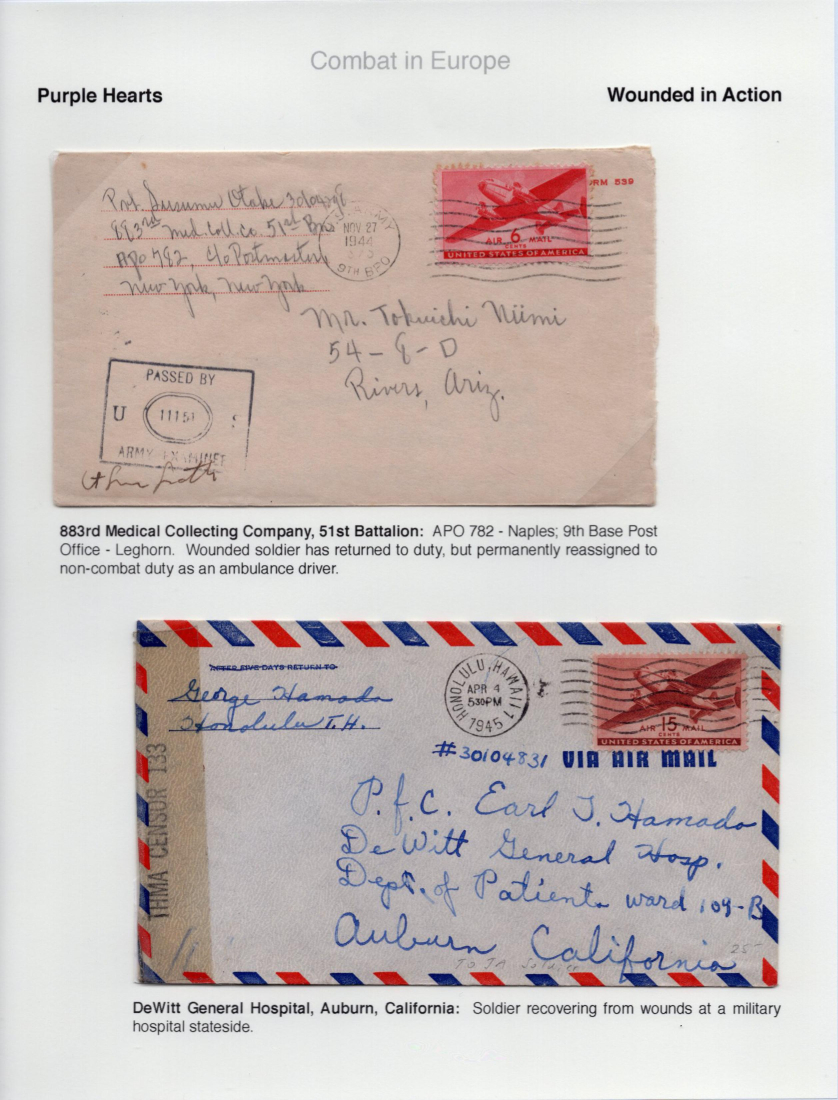 Combat in Europe
Purple Hearts
Wounded in Action
Pvt. Susumu Otake
883rd Med. Coll. Co. 51st Bn
APO 782, c/o Postmaster
New York, New York
U.S. ARMY
NOV 27
1944
9TH BPO
AIR 6 MAIL
CENTS
UNITED STATES OF AMERICA
RM 539
Mr. Tokuichi Niimi
54-8-D
Rivers, Ariz.
PASSED BY
U 11151 S
ARMY EXAMINER
883rd Medical Collecting Company, 51st Battalion: APO 782 - Naples; 9th Base Post
Office - Leghorn. Wounded soldier has returned to duty, but permanently reassigned to
non-combat duty as an ambulance driver.
AFTER FIVE DAYS RETURN TO
George Hamada
Honolulu T.H.
HONOLULU, HAWAII 1
APR 4
530PM
1945
AIR 15 MAIL
CENTS
UNITED STATES OF AMERICA
#30104831 VIA AIR MAIL
P.f.C. Earl T. Hamada
DeWitt General Hosp.
Dept. of Patients ward 109-B
Auburn California
TO JA Soldier
25-
IHMA CENSOR 133
DeWitt General Hospital, Auburn, California: Soldier recovering from wounds at a military
hospital stateside.